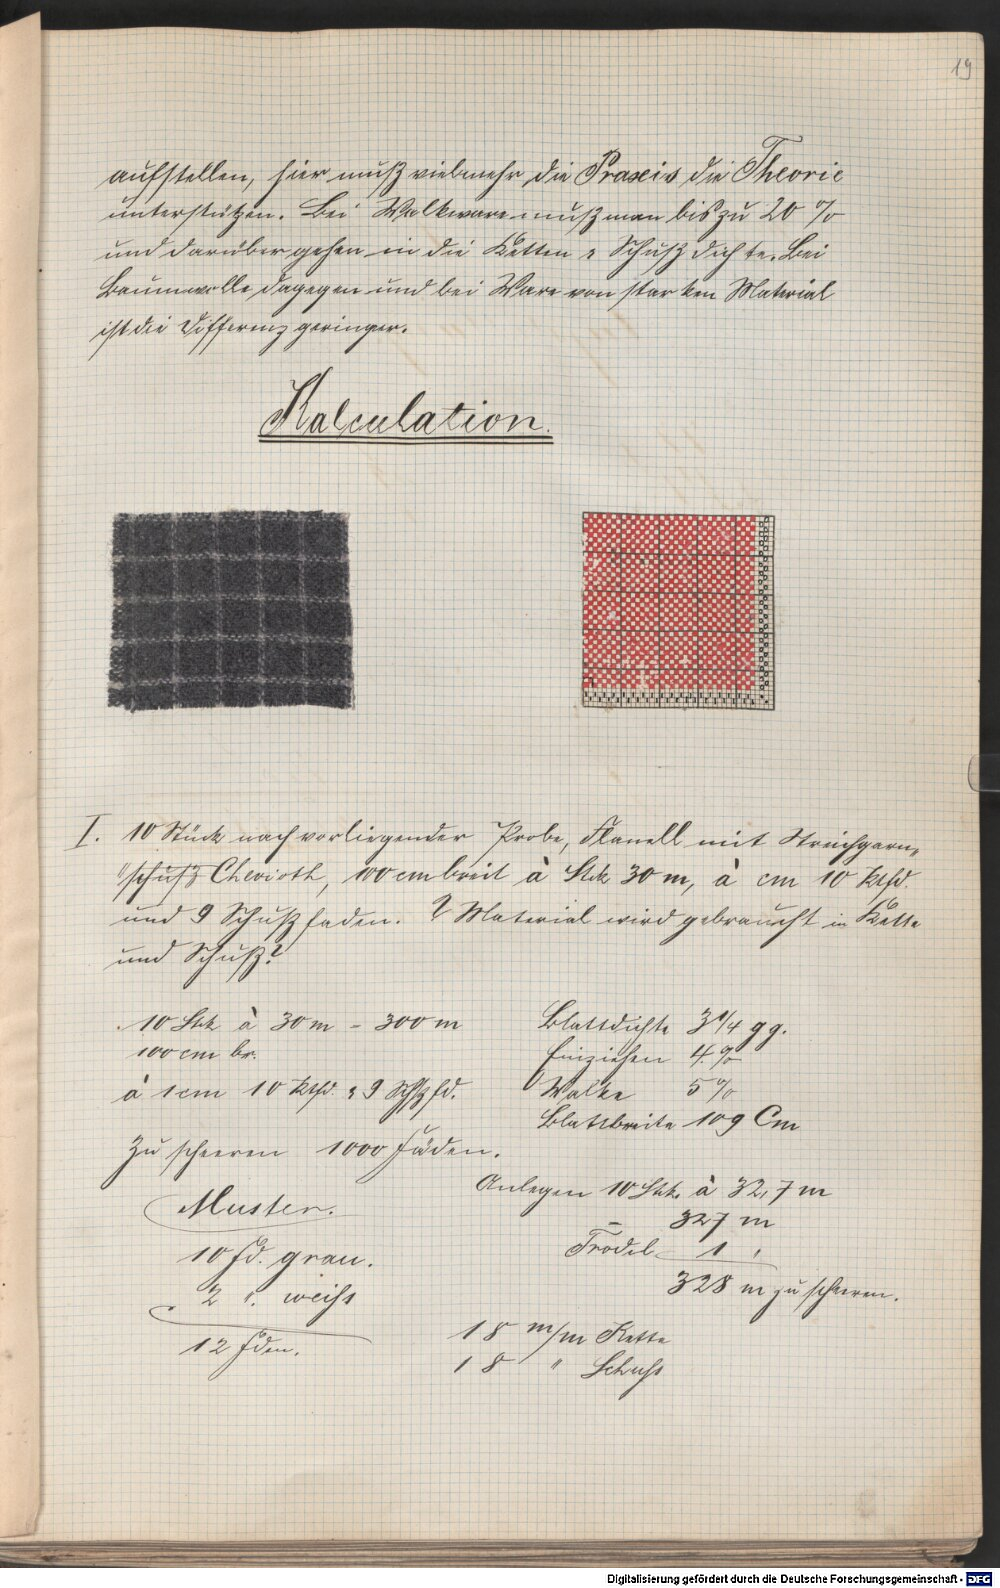 19
aufstellen, hier muß vielmehr die Praxis die Theorie
unterstützen. Bei Walkware muß man bis zu 20 %
und darüber gehen in die Ketten u Schußdichte. Bei
Baumwolle dagegen und bei Ware von starken Material
ist die Differenz geringer.
Kalculation.
I. 10 Stück nach vorliegender Probe, Flanell mit Streichgarn„
„schuß Chevioth, 100 cm breit à Stck 30 m, à cm 10 Ktfd.
und 9 Schußfaden. ? Material wird gebraucht in Kette
und Schuß?
10 Stck à 30 m – 300 m
100 cm br.
à 1 cm 10 Ktfd. u 9 Schßfd.
Zu scheeren 1000 Fäden.
Muster.
10 fd. grau.
2 ". weiß
12 fden.
Blattdichte 3 1/4 gg.
Einziehen 4 %
Walke 5 %
Blattbreite 109 Cm
Anlegen 10 Stck. à 32,7 m
– 327 m
Trodel 1 "
328 m zu scheeren.
18 m/m Kette
18 " Schuß
Digitalisierung gefördert durch die Deutsche Forschungsgemeinschaft - DFG